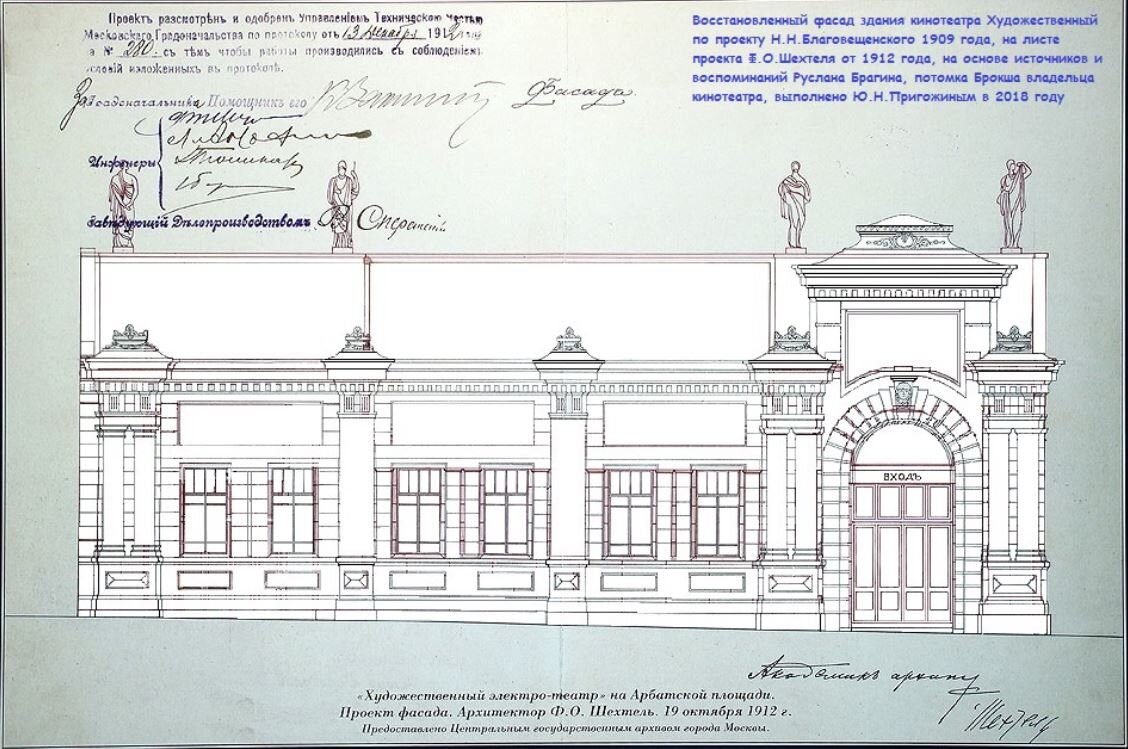 Проектъ разсмотрѣн и одобрен Управленіемъ Техническою частью
Московскаго Градоначальства по протоколу отъ 13 декабря 1912 года
за № 280. съ тѣмъ чтобы работы производились съ соблюденіемъ
условій изложенныхъ въ протоколѣ.
Восстановленный фасад здания кинотеатра Художественный
по проекту Н.Н.Благовещенского 1909 года, на листе
проекта Ф.О.Шехтеля от 1912 года, на основе источников и
воспоминаний Руслана Брагина, потомка Брокша владельца
кинотеатра, выполнено Ю.Н.Пригожиным в 2018 году
За Градоначальника Помощникъ его
Фасадъ.
Инженеры
Завѣдующій Дѣлопроизводствомъ В. Сперанскій
ВХОДЪ
Академикъ архит
Шехтель
«Художественный электро-театр» на Арбатской площади.
Проект фасада. Архитектор Ф.О. Шехтель. 19 октября 1912 г.
Предоставлено Центральным государственным архивом города Москвы.